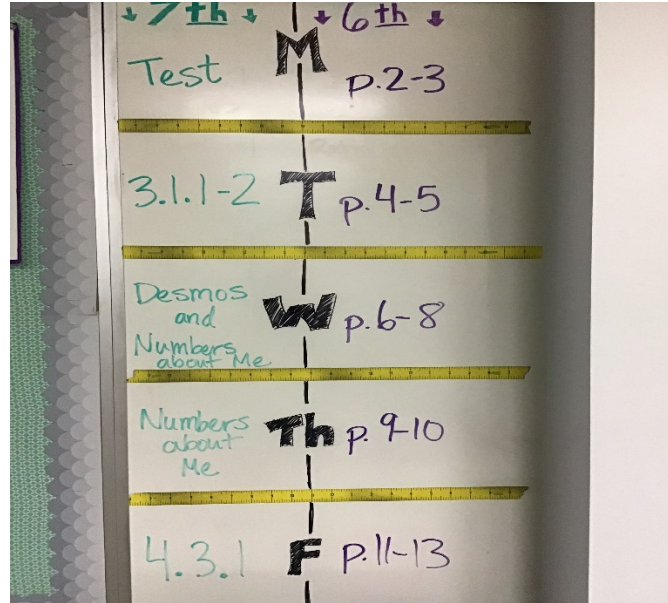 ↓ 7th ↓ ↓ 6th ↓
Test M p.2-3
3.1.1-2 T p.4-5
Desmos
and W p.6-8
Numbers
about Me
Numbers
about Th p. 9-10
Me
4.3.1 F p.11-13